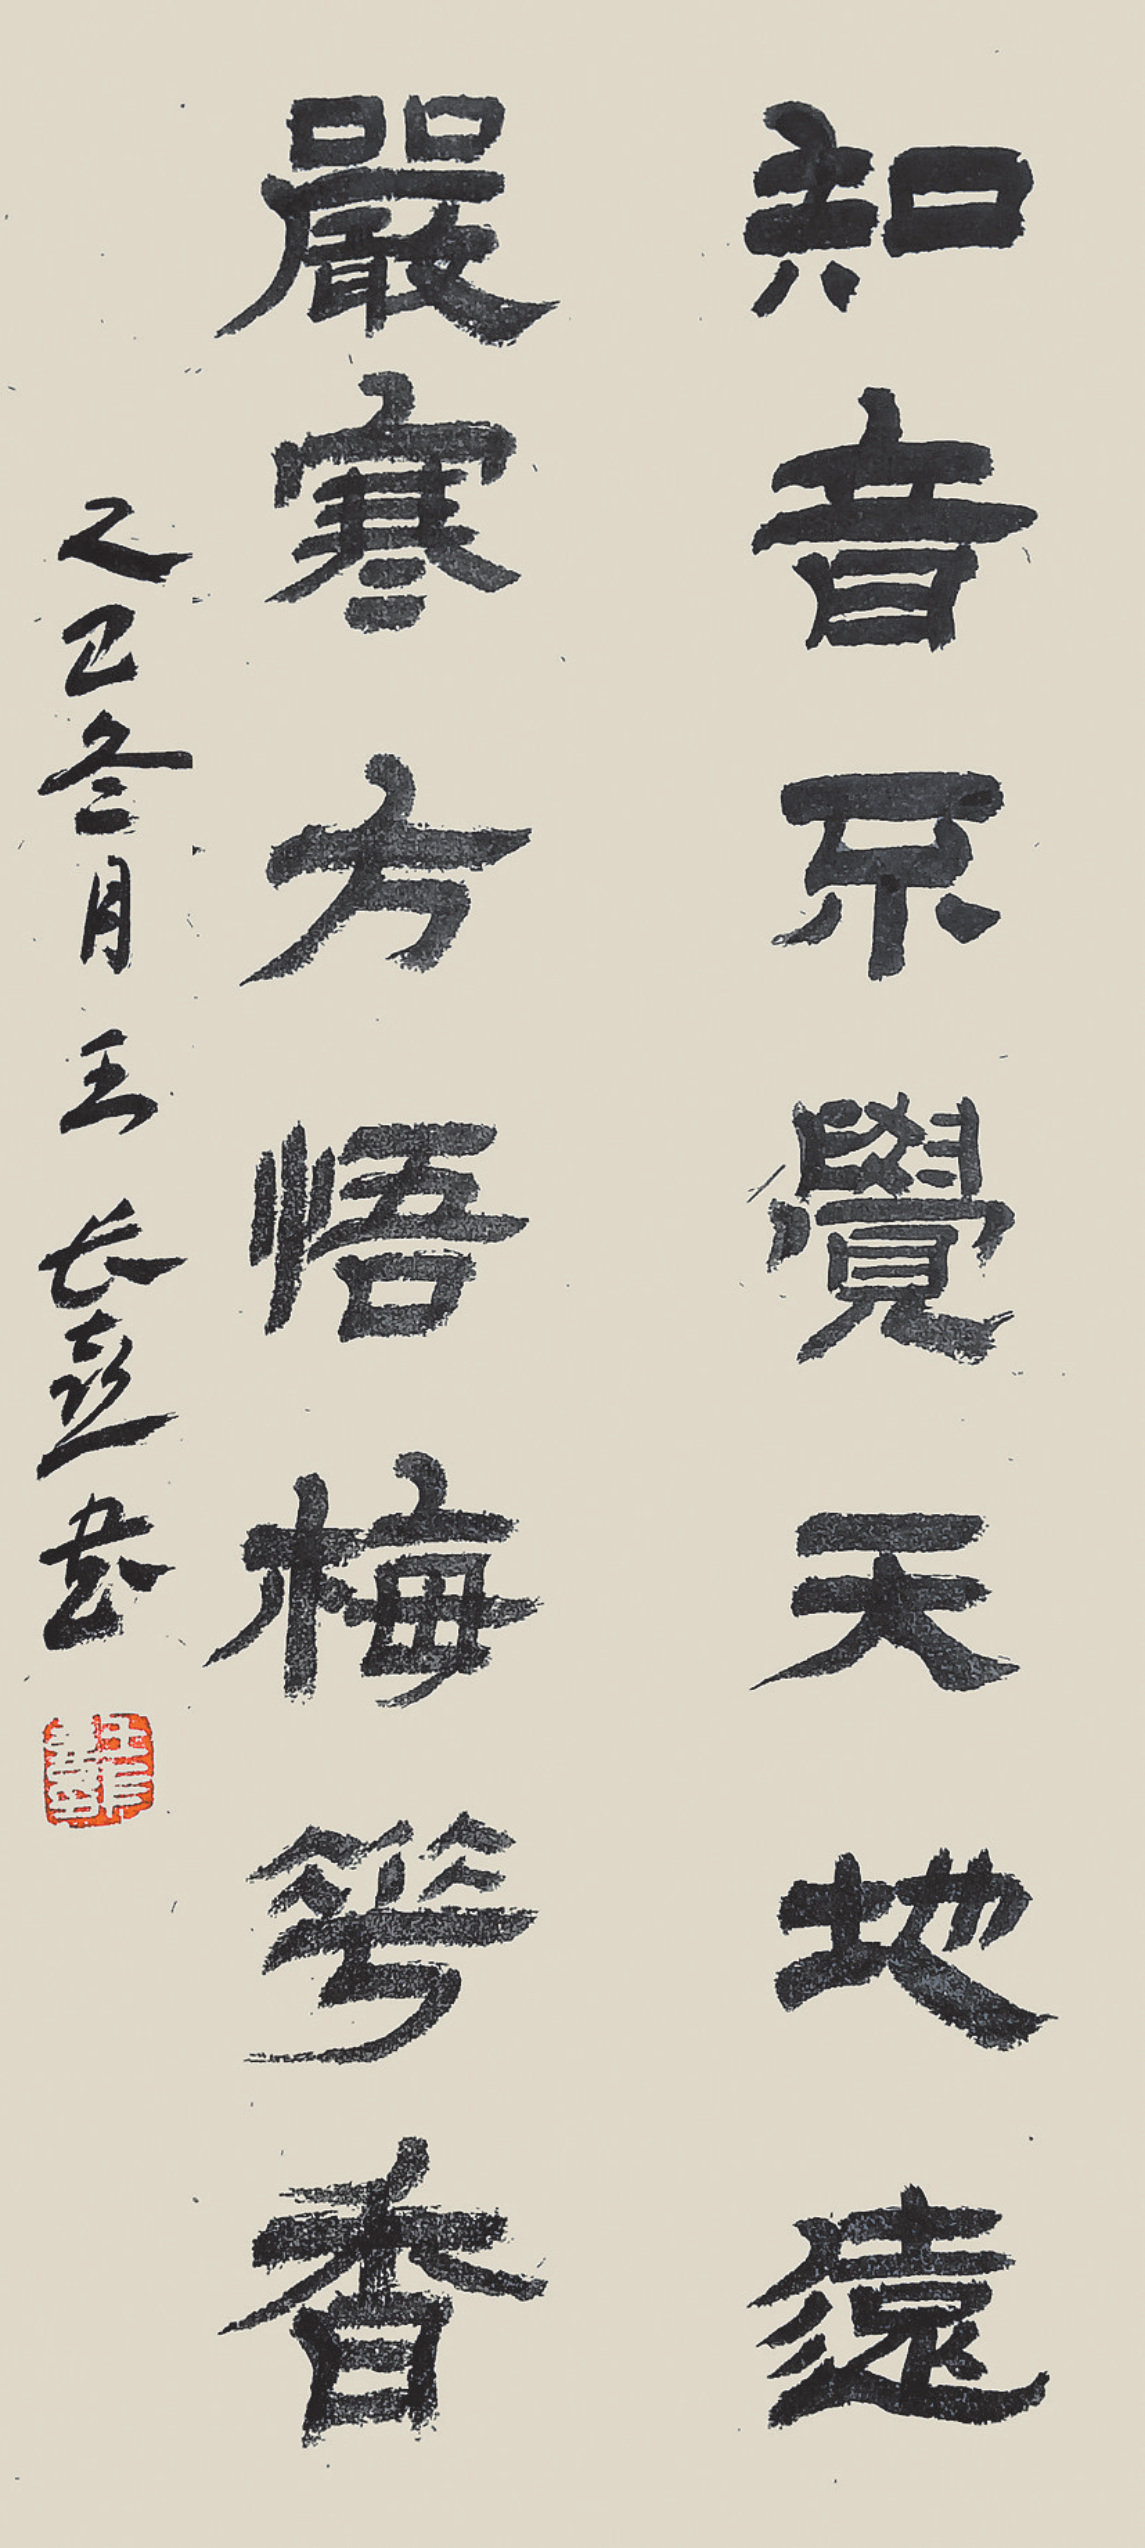 知音不覺天地遠
嚴寒方悟梅花香
乙巳冬月 王長喜書